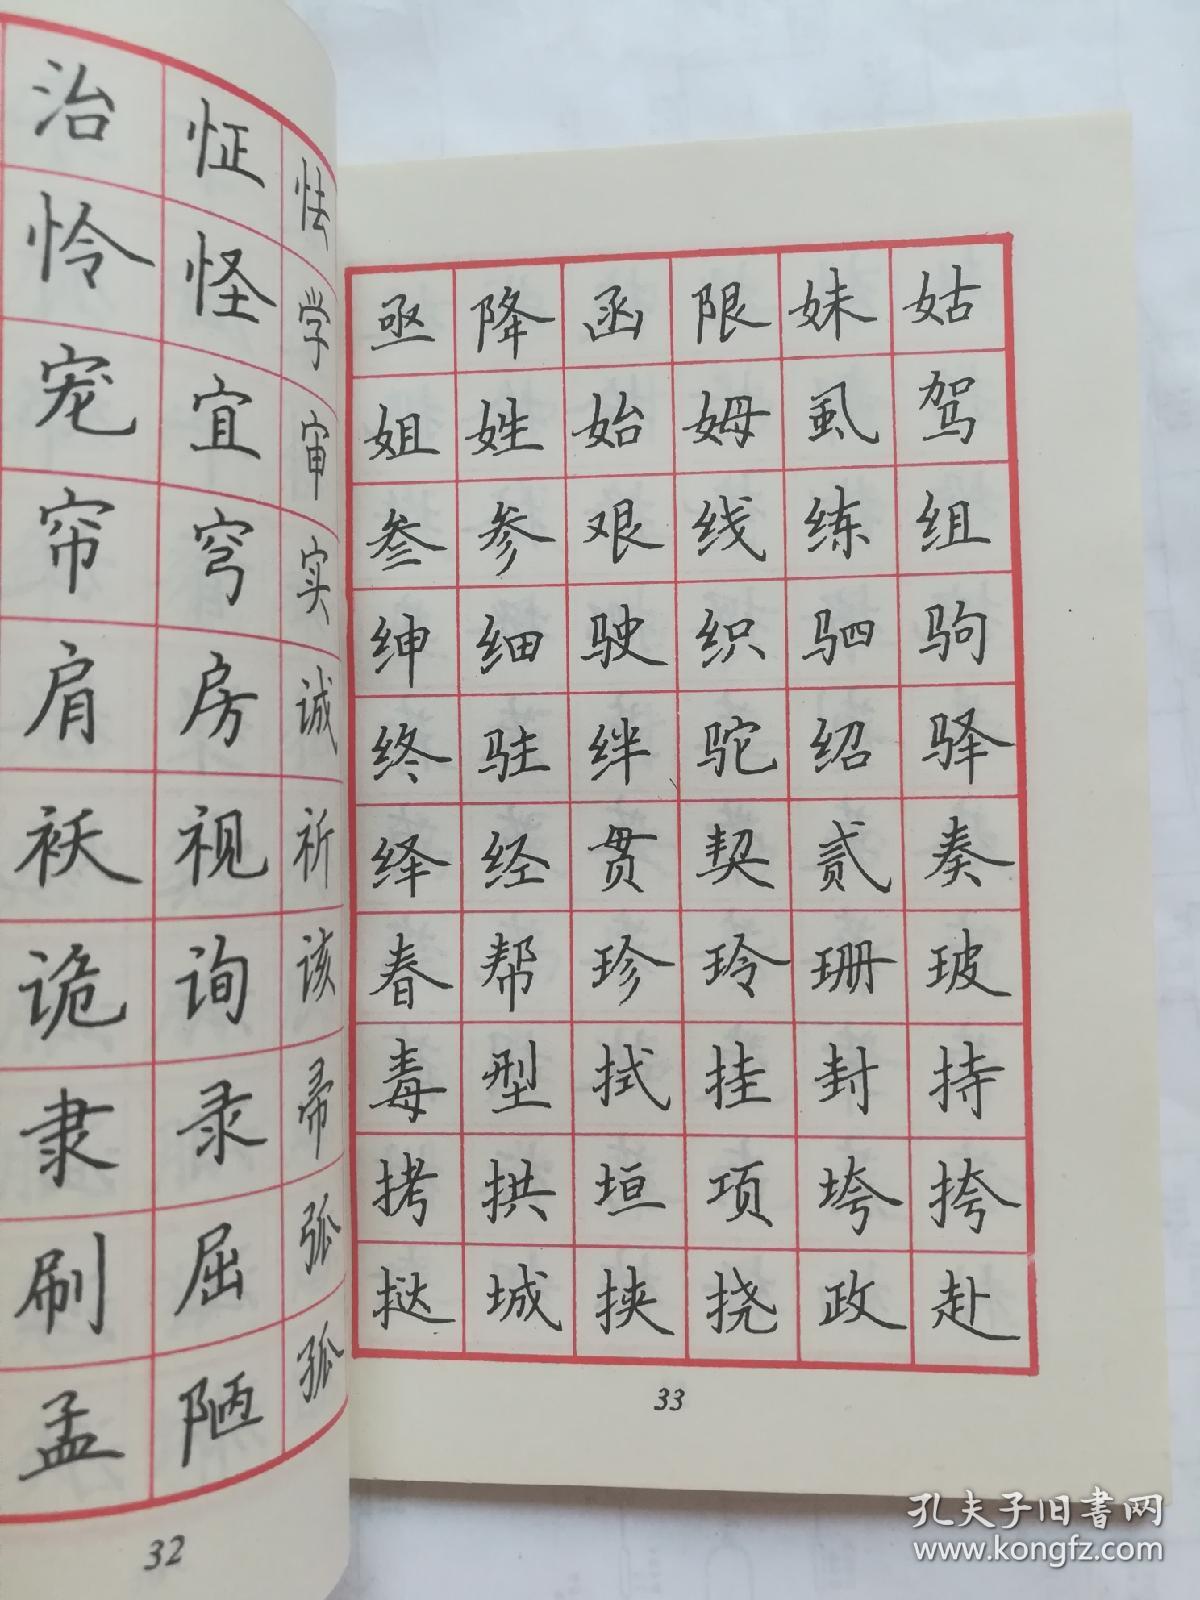 治怔怯
怜怪学
宠宜审
帘穹实
肩房诚
袄视祈
诡询该
隶录帚
刷屈弧
孟陋孤
32
亟降函限妹姑
姐姓始姆虱驾
叁参艰线练组
绅细驶织驷驹
终驻绊驼绍驿
绎经贯契贰奏
春帮珍玲珊玻
毒型拭挂封持
拷拱垣项垮挎
挞城挟挠政赴
33
孔夫子旧书网
www.kongfz.com